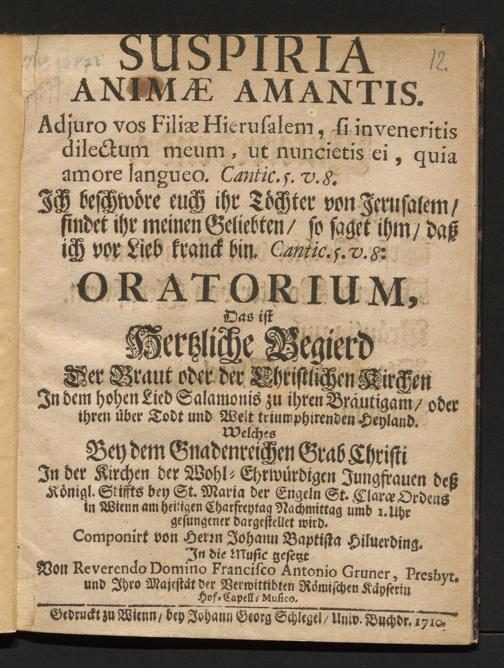 12.
SUSPIRIA
ANIMÆ AMANTIS.
Adjuro vos Filiæ Hierusalem, si inveneritis
dilectum meum, ut nuncietis ei, quia
amore langueo. Cantic. 5. v. 8.
Ich beschwöre euch ihr Töchter von Jerusalem/
findet ihr meinen Geliebten/ so saget ihm/ daß
ich vor Lieb kranck bin. Cantic. 5. v. 8:
ORATORIUM,
Das ist
Hertzliche Begierd
Der Braut oder der Christlichen Kirchen
In dem hohen Lied Salamonis zu ihren Bräutigam/ oder
ihren über Todt und Welt triumphirenden Heyland.
Welches
Bey dem Gnadenreichen Grab Christi
In der Kirchen der Wohl-Ehrwürdigen Jungfrauen deß
Königl. Stiffts bey St. Maria der Engeln St. Claræ Ordens
in Wienn am heiligen Charfreytag Nachmittag umb 1. Uhr
gesungener dargestellet wird.
Componirt von Herrn Johann Baptista Hiluerding.
In die Music gesetzt
Von Reverendo Domino Francisco Antonio Gruner, Presbyt.
und Ihro Majestät der Verwittibten Römischen Käyserin
Hof-Capell-Musico.
Gedruckt zu Wienn/ bey Johann Georg Schlegel/ Univ. Buchdr. 1710.